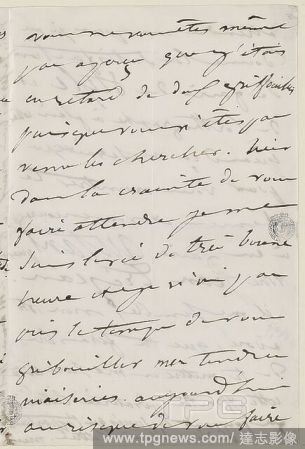 vous ne vous êtes même
pas aperçu que j'étois
en retard de dix gribouillis
puisque vous n'êtes pas
venu les chercher. hier
dans la crainte de vous
faire attendre je me
suis levée de très bonne
heure et je n'ai pas
pris le temps de vous
gribouiller mes tendres
niaiseries aujourd'hui
au risque de vous faire
TPG
www.tpgnews.com/達志影像